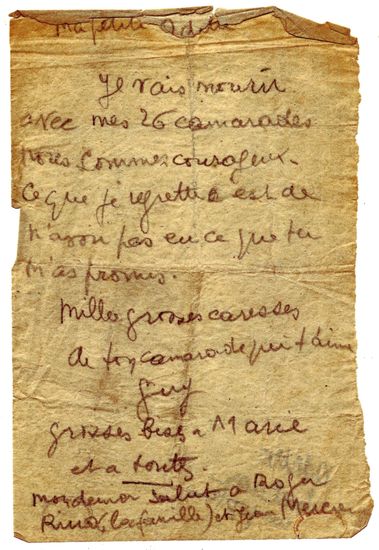 Ma petite Odette
Je vais mourir
avec mes 26 camarades
nous sommes courageux.
Ce que je regrette est de
n'avoir pas eu ce que tu
m'as promis.
Mille grosses caresses
de ton camarade qui t'aime
Guy
grosses bises a Marie
et a toutes.
mon dernier Salut a Roger
(la famille) et Jean Mercier